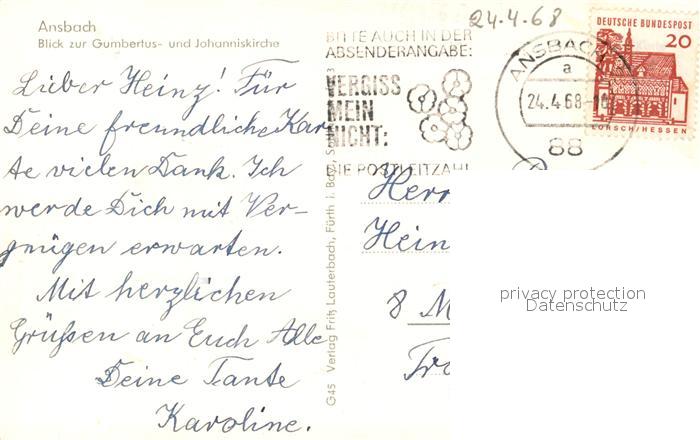 Ansbach
Blick zur Gumbertus- und Johanniskirche
Lieber Heinz! Für
Deine freundliche Kar-
te vielen Dank. Ich
werde Dich mit Ver-
gnügen erwarten.
Mit herzlichen
Grüßen an Euch Alle
Deine Tante
Karoline.
G45 Verlag Fritz Lauterbach, Fürth i. Bay.,
24.4.68
BITTE AUCH IN DER
ABSENDERANGABE:
VERGISS
MEIN
NICHT:
DIE POSTLEITZAHL
ANSBACH
a
24.4.68-
88
DEUTSCHE BUNDESPOST
20
LORSCH/HESSEN
Herr
Hein
8 M
privacy protection
Datenschutz